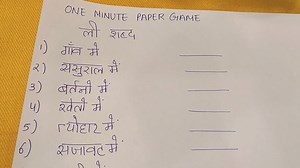 ONE MINUTE PAPER GAME
ली शब्द
१) गाँव में
२) ससुराल में
३) बर्तनो में
४) खेतो में
५) त्योहार में
६) सजावट में